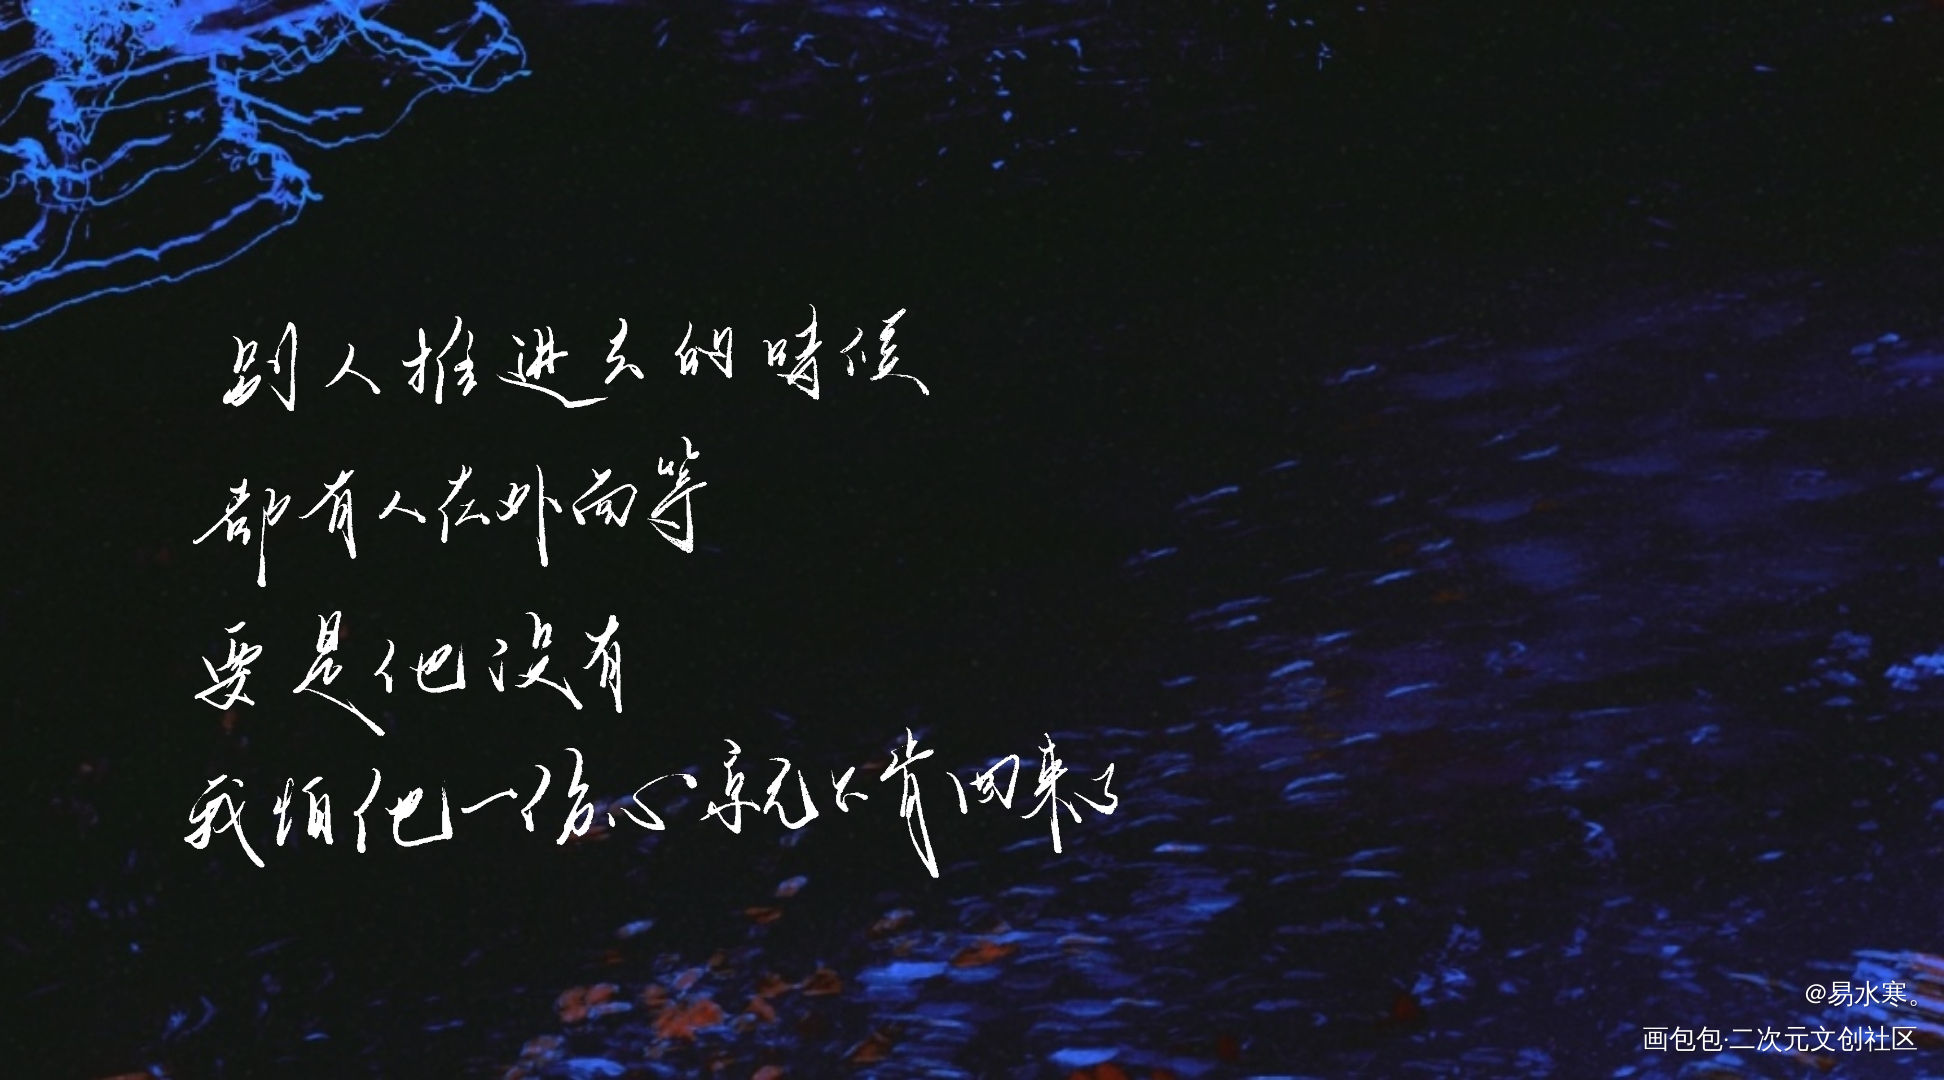 别人推进去的時候
都有人在外面等
要是他没有
我怕他一伤心就不肯回来了
@易水寒。
画包包·二次元文创社区